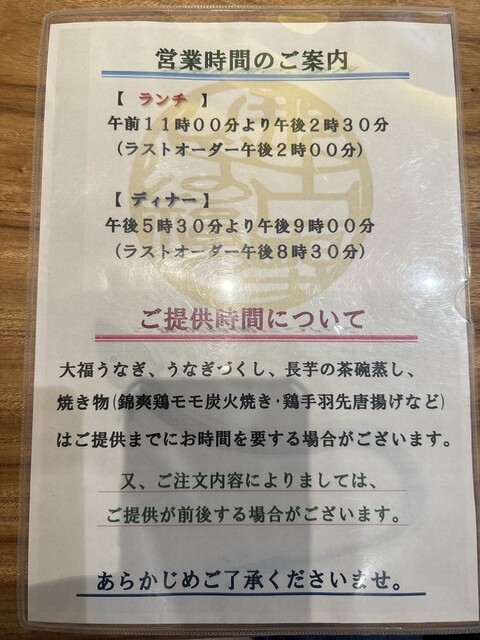 営業時間のご案内
【 ランチ 】
午前１１時００分より午後２時３０分
（ラストオーダー午後２時００分）
【 ディナー 】
午後５時３０分より午後９時００分
（ラストオーダー午後８時３０分）
ご提供時間について
大福うなぎ、うなぎづくし、長芋の茶碗蒸し、
焼き物(錦爽鶏モモ炭火焼き・鶏手羽先唐揚げなど)
はご提供までにお時間を要する場合がございます。
又、ご注文内容によりましては、
ご提供が前後する場合がございます。
あらかじめご了承くださいませ。